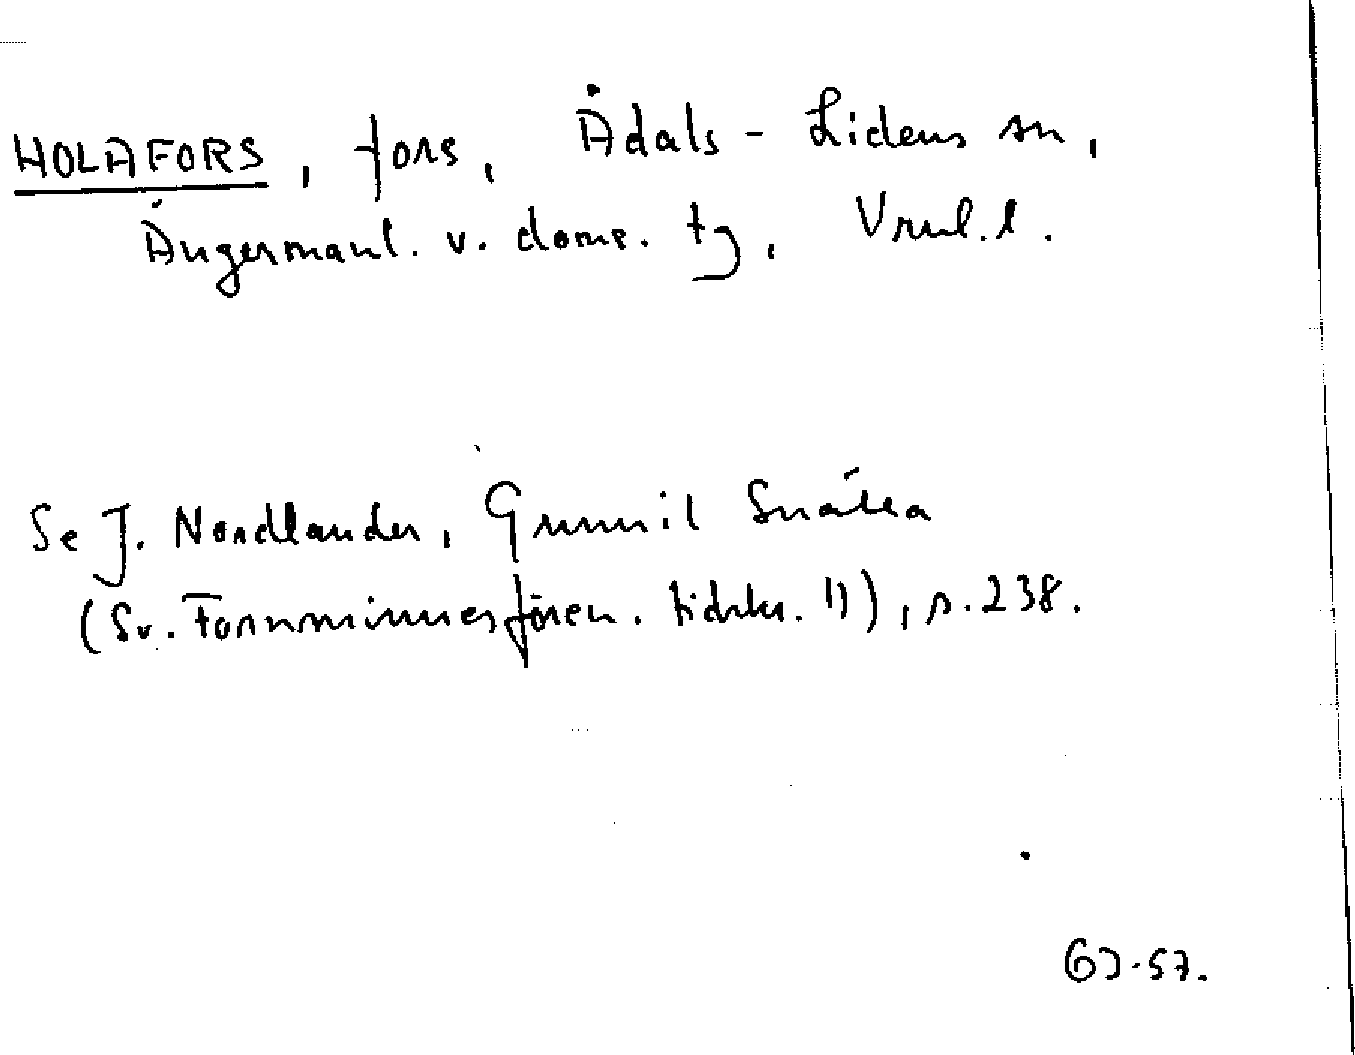 HOLAFORS, fors, Ådals-Lidens sn,
Ångermanl. v. doms. tg, Vrnl. l.
Se J. Nordlander, Gunnil Snälla
(Sv. Fornminnesfören. tidskr. 11), s. 238.
GJ-57.